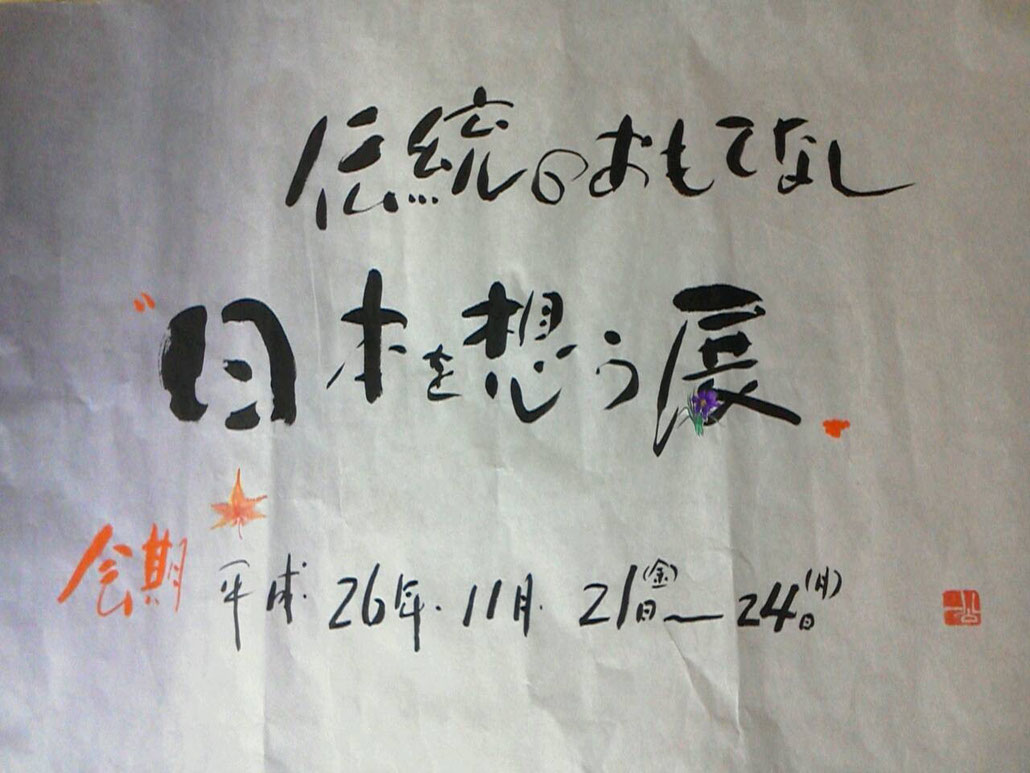 伝統のおもてなし
"日本を想う展"
会期 平成26年.11月.21日(金)～24日(月)